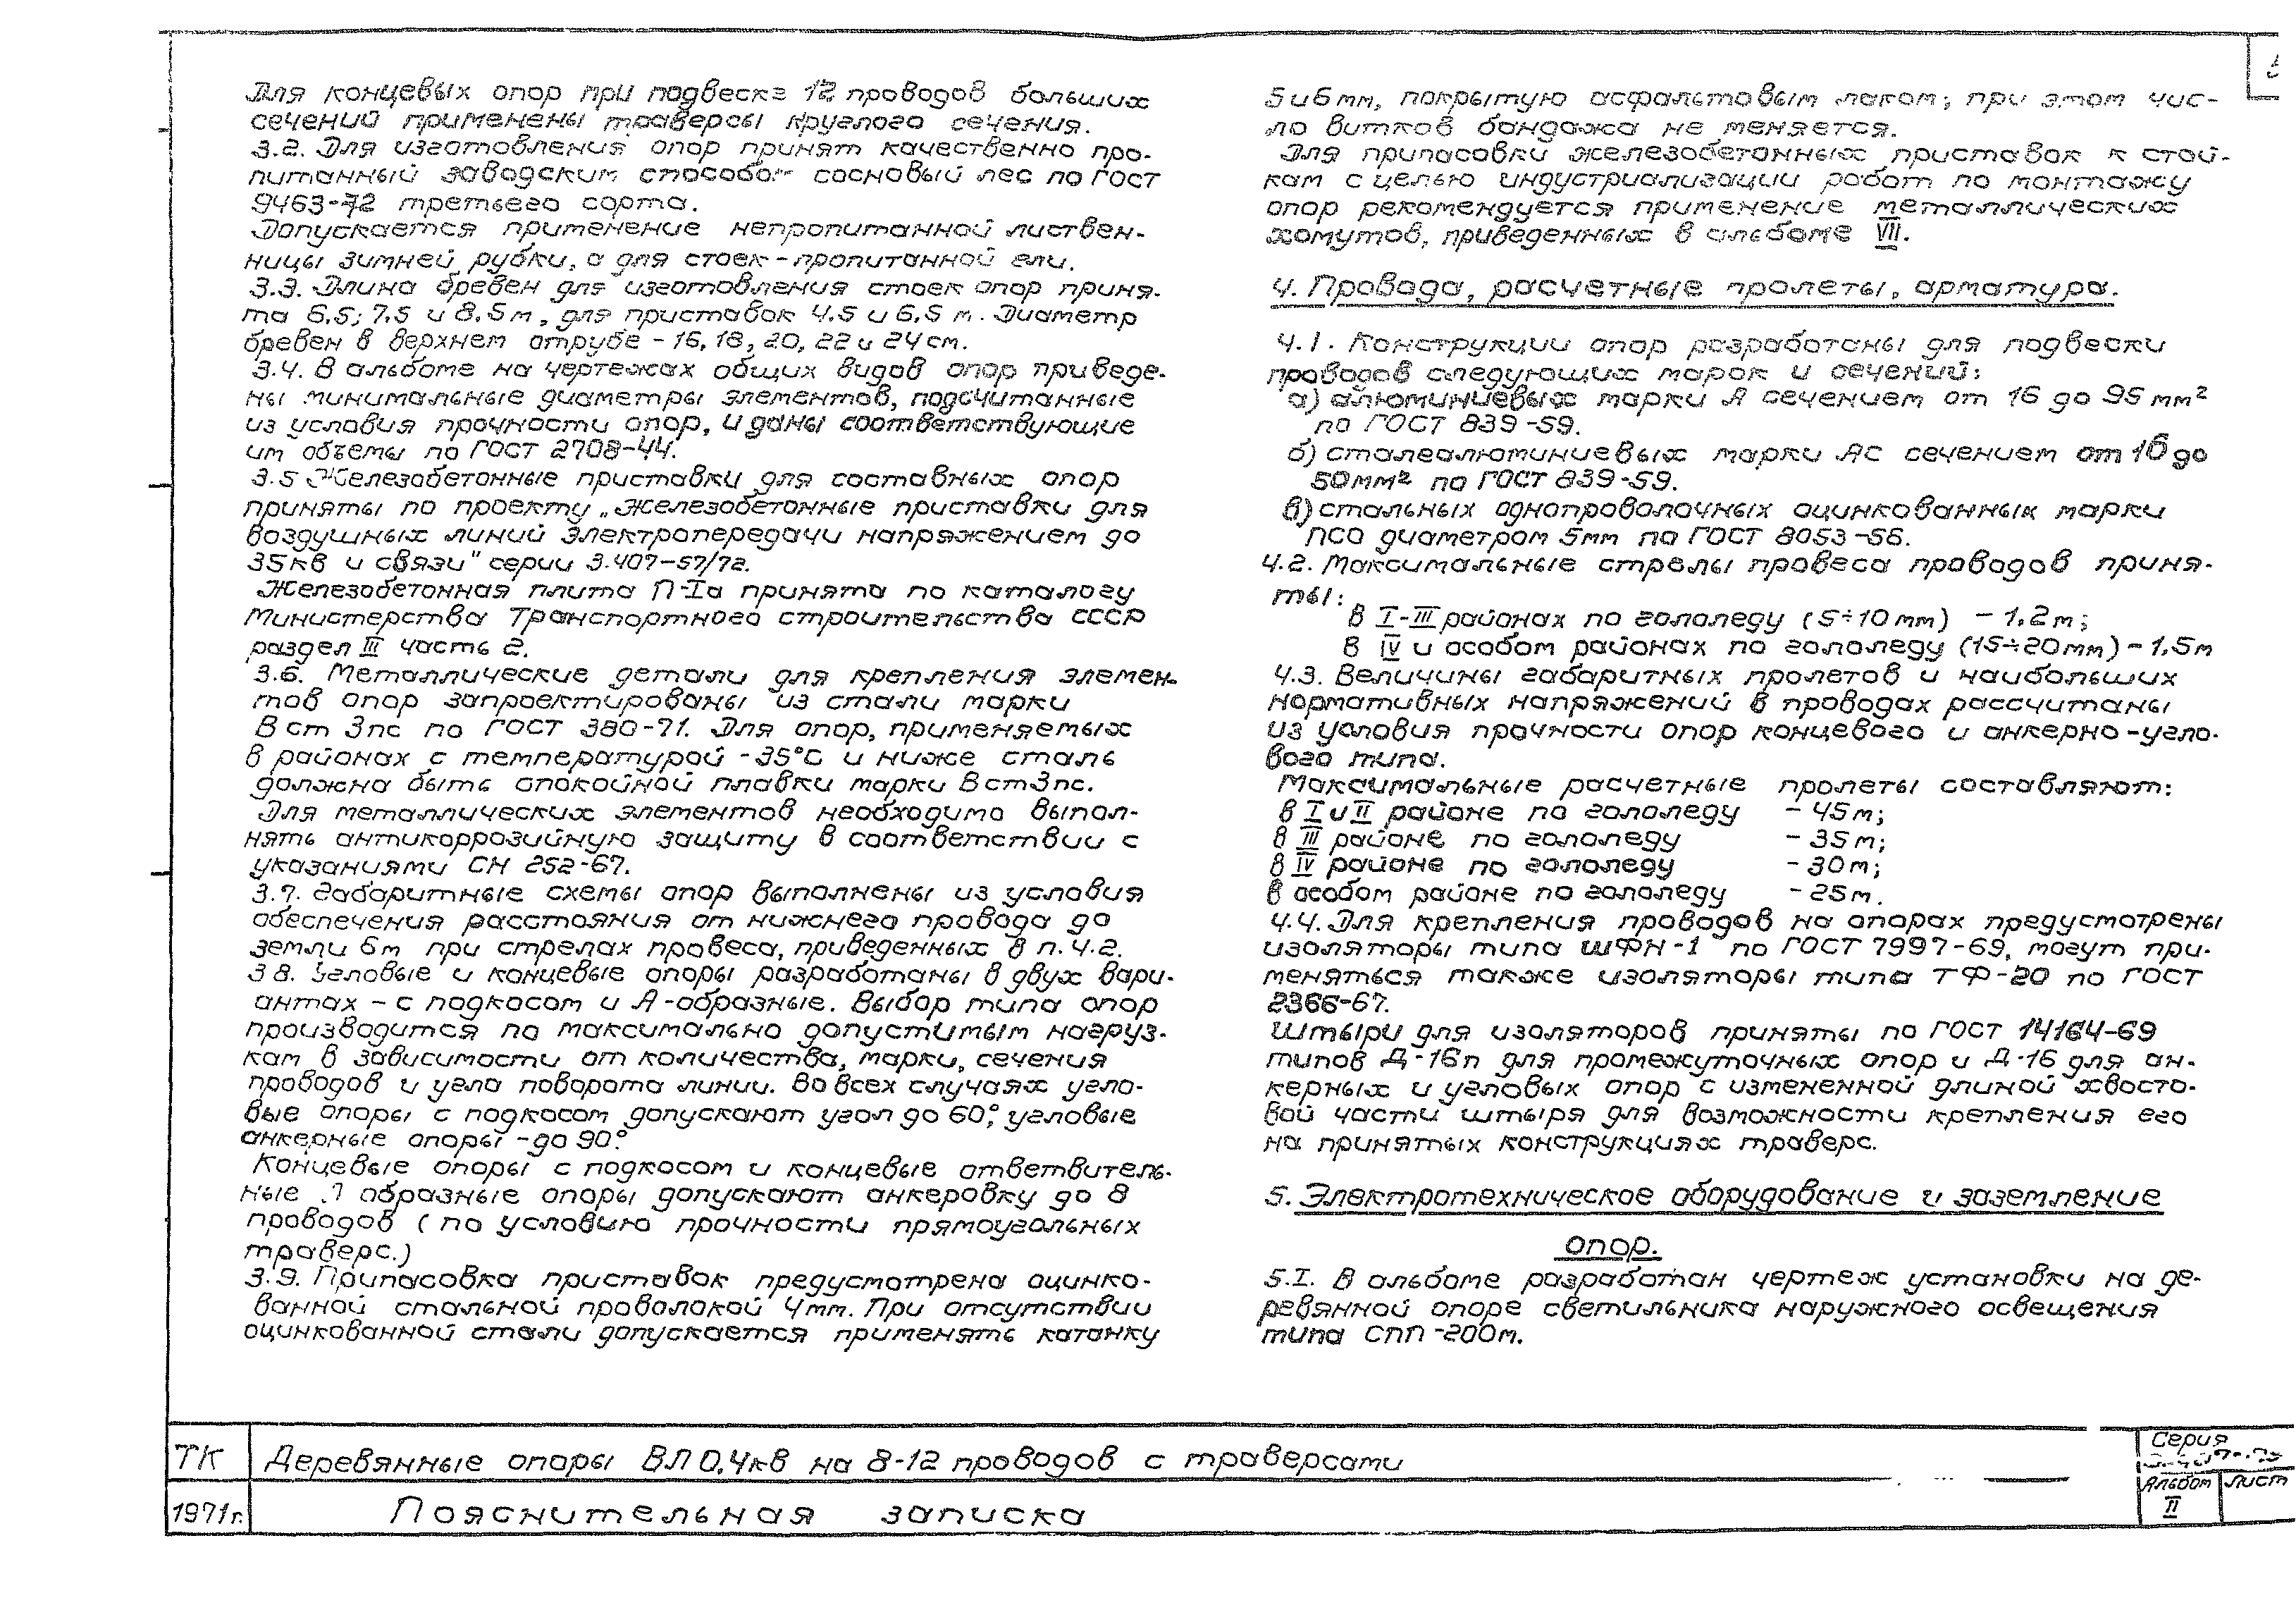 Для концевых опор при подвеске 12 проводов больших
сечений применены траверсы круглого сечения.
3.2. Для изготовления опор принят качественно про-
питанный заводским способом сосновый лес по ГОСТ
9463-72 третьего сорта.
Допускается применение непропитанной листвен-
ницы зимней рубки, а для стоек - пропитанной ели.
3.3. Длина бревен для изготовления стоек опор приня-
та 6,5; 7,5 и 8,5 м, для приставок 4,5 и 6,5 м. Диаметр
бревен в верхнем отрубе - 16, 18, 20, 22 и 24 см.
3.4. В альбоме на чертежах общих видов опор приведе-
ны минимальные диаметры элементов, подсчитанные
из условия прочности опор, и даны соответствующие
им объемы по ГОСТ 2708-44.
3.5 Железобетонные приставки для составных опор
приняты по проекту „Железобетонные приставки для
воздушных линий электропередачи напряжением до
35кв и связи" серии 3.407-57/72.
Железобетонная плита П-Iа принята по каталогу
Министерства Транспортного строительства СССР
раздел III часть 2.
3.6. Металлические детали для крепления элемен-
тов опор запроектированы из стали марки
В ст 3пс по ГОСТ 380-71. Для опор, применяемых
в районах с температурой -35°С и ниже сталь
должна быть спокойной плавки марки ВСт3пс.
Для металлических элементов необходимо выпол-
нять антикоррозийную защиту в соответствии с
указаниями СН 252-67.
3.7. Габаритные схемы опор выполнены из условия
обеспечения расстояния от нижнего провода до
земли 6м при стрелах провеса, приведенных в п. 4.2.
3 8. Угловые и концевые опоры разработаны в двух вари-
антах - с подкосом и А-образные. Выбор типа опор
производится по максимально допустимым нагруз-
кам в зависимости от количества, марки, сечения
проводов и угла поворота линии. Во всех случаях угло-
вые опоры с подкосом допускают угол до 60°, угловые
анкерные опоры - до 90°.
Концевые опоры с подкосом и концевые ответвитель-
ные образные опоры допускают анкеровку до 8
проводов (по условию прочности прямоугольных
траверс.)
3.9. Припасовка приставок предусмотрена оцинко-
ванной стальной проволокой 4мм. При отсутствии
оцинкованной стали допускается применять катанку
5 и 6 мм, покрытую асфальтовым лаком; при этом чис-
ло витков бандажа не меняется.
Для припасовки железобетонных приставок к стой-
кам с целью индустриализации работ по монтажу
опор рекомендуется применение металлических
хомутов, приведенных в альбоме VII.
4. Провода, расчетные пролеты, арматура.
4.1. Конструкции опор разработаны для подвески
проводов следующих марок и сечений:
а) алюминиевых марки А сечением от 16 до 95 мм²
по ГОСТ 839-59.
б) сталеалюминиевых марки АС сечением от 16 до
50мм² по ГОСТ 839-59.
в) стальных однопроволочных оцинкованных марки
ПСО диаметром 5мм по ГОСТ 8053-56.
4.2. Максимальные стрелы провеса проводов приня-
ты:
в I-III районах по гололеду (5÷10 мм) - 1,2м;
в IV и особом районах по гололеду (15÷20мм) - 1,5м
4.3. Величины габаритных пролетов и наибольших
нормативных напряжений в проводах рассчитаны
из условия прочности опор концевого и анкерно-угло-
вого типа.
Максимальные расчетные пролеты составляют:
в I и II районе по гололеду - 45м;
в III районе по гололеду - 35м;
в IV районе по гололеду - 30м;
в особом районе по гололеду - 25м.
4.4. Для крепления проводов на опорах предусмотрены
изоляторы типа ШФН-1 по ГОСТ 7997-69, могут при-
меняться также изоляторы типа ТФ-20 по ГОСТ
2366-67.
Штыри для изоляторов приняты по ГОСТ 14164-69
типов Д-16п для промежуточных опор и Д-16 для ан-
керных и угловых опор с измененной длиной хвосто-
вой части штыря для возможности крепления его
на принятых конструкциях траверс.
5. Электротехническое оборудование и заземление
опор.
5.I. В альбоме разработан чертеж установки на де-
ревянной опоре светильника наружного освещения
типа СПП-200м.
ТК
Деревянные опоры ВЛ 0,4кв на 8-12 проводов с траверсами
1971г.
Пояснительная записка
Серия
Альбом
II
Лист